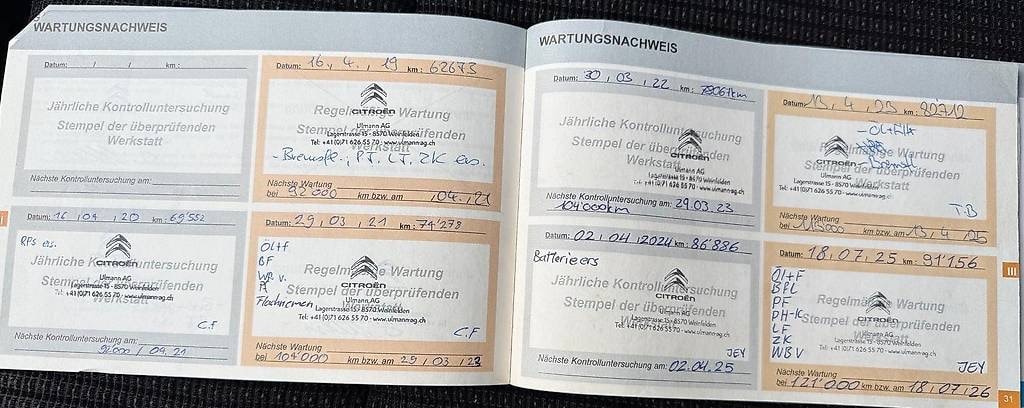 WARTUNGSNACHWEIS
Datum: / / km :
Jährliche Kontrolluntersuchung
Stempel der überprüfenden
Werkstatt
Nächste Kontrolluntersuchung am:
Datum: 16, 4, 19 km : 62673
Regelmäßige Wartung
CITROËN
Ulmann AG
Lagerstrasse 15 - 8570 Weinfelden
Tel: +41(0)71 626 55 70 - www.ulmann-ag.ch
- Bremsfl. ; PF, LF, ZK ers.
Nächste Wartung
bei 92000 km bzw. am /04, 21
Datum: 16 / 04 / 20 km : 69'552
RPs ers.
Jährliche Kontrolluntersuchung
CITROËN
Ulmann AG
Lagerstrasse 15 - 8570 Weinfelden
Tel: +41(0)71 626 55 70 - www.ulmann-ag.ch
C.F
Nächste Kontrolluntersuchung am:
92000 / 09.21
Datum: 29, 03, 21 km : 74'278
Öl+F
BF
WB v.
Flachriemen
Regelmäßige Wartung
Stempel der überprüfenden
CITROËN
Ulmann AG
Lagerstrasse 15 - 8570 Weinfelden
Tel: +41(0)71 626 55 70 - www.ulmann-ag.ch
C.F
Nächste Wartung
bei 104'000 km bzw. am 29 / 03 / 23
WARTUNGSNACHWEIS
Datum: 30, 03, 22 km :
Jährliche Kontrolluntersuchung
Stempel der überprüfenden
Werkstatt
CITROËN
Ulmann AG
Lagerstrasse 15 - 8570 Weinfelden
Tel: +41 (0)71 626 55 70 - www.ulmann-ag.ch
Nächste Kontrolluntersuchung am: 29.03.23
104'000km
Datum: 13, 4, 23 km : 82712
- Öl+Filt
- Bremsfl
CITROËN
Ulmann AG
Lagerstrasse 15 - 8570 Weinfelden
Tel: +41 (0)71 626 55 70 - www.ulmann-ag.ch
T.B
Nächste Wartung
bei 113000 km bzw. am 13, 4, 25
Datum: 02, 04, 2024 km : 86'886
Batterie ers
Jährliche Kontrolluntersuchung
Stempel der überprüfenden
Werkstatt
CITROËN
Ulmann AG
Lagerstrasse 15 - 8570 Weinfelden
Tel: +41 (0)71 626 55 70 - www.ulmann-ag.ch
JEY
Nächste Kontrolluntersuchung am: 02.04.25
Datum: 18, 07, 25 km : 91'156
Öl+F
BFL
PF
PH-K
LF
ZK
WBV
Regelmäßige Wartung
Stempel der überprüfenden
Werkstatt
CITROËN
Ulmann AG
Lagerstrasse 15 - 8570 Weinfelden
Tel: +41 (0)71 626 55 70 - www.ulmann-ag.ch
JEY
Nächste Wartung
bei 121'000 km bzw. am 18 / 07 / 26
III
31